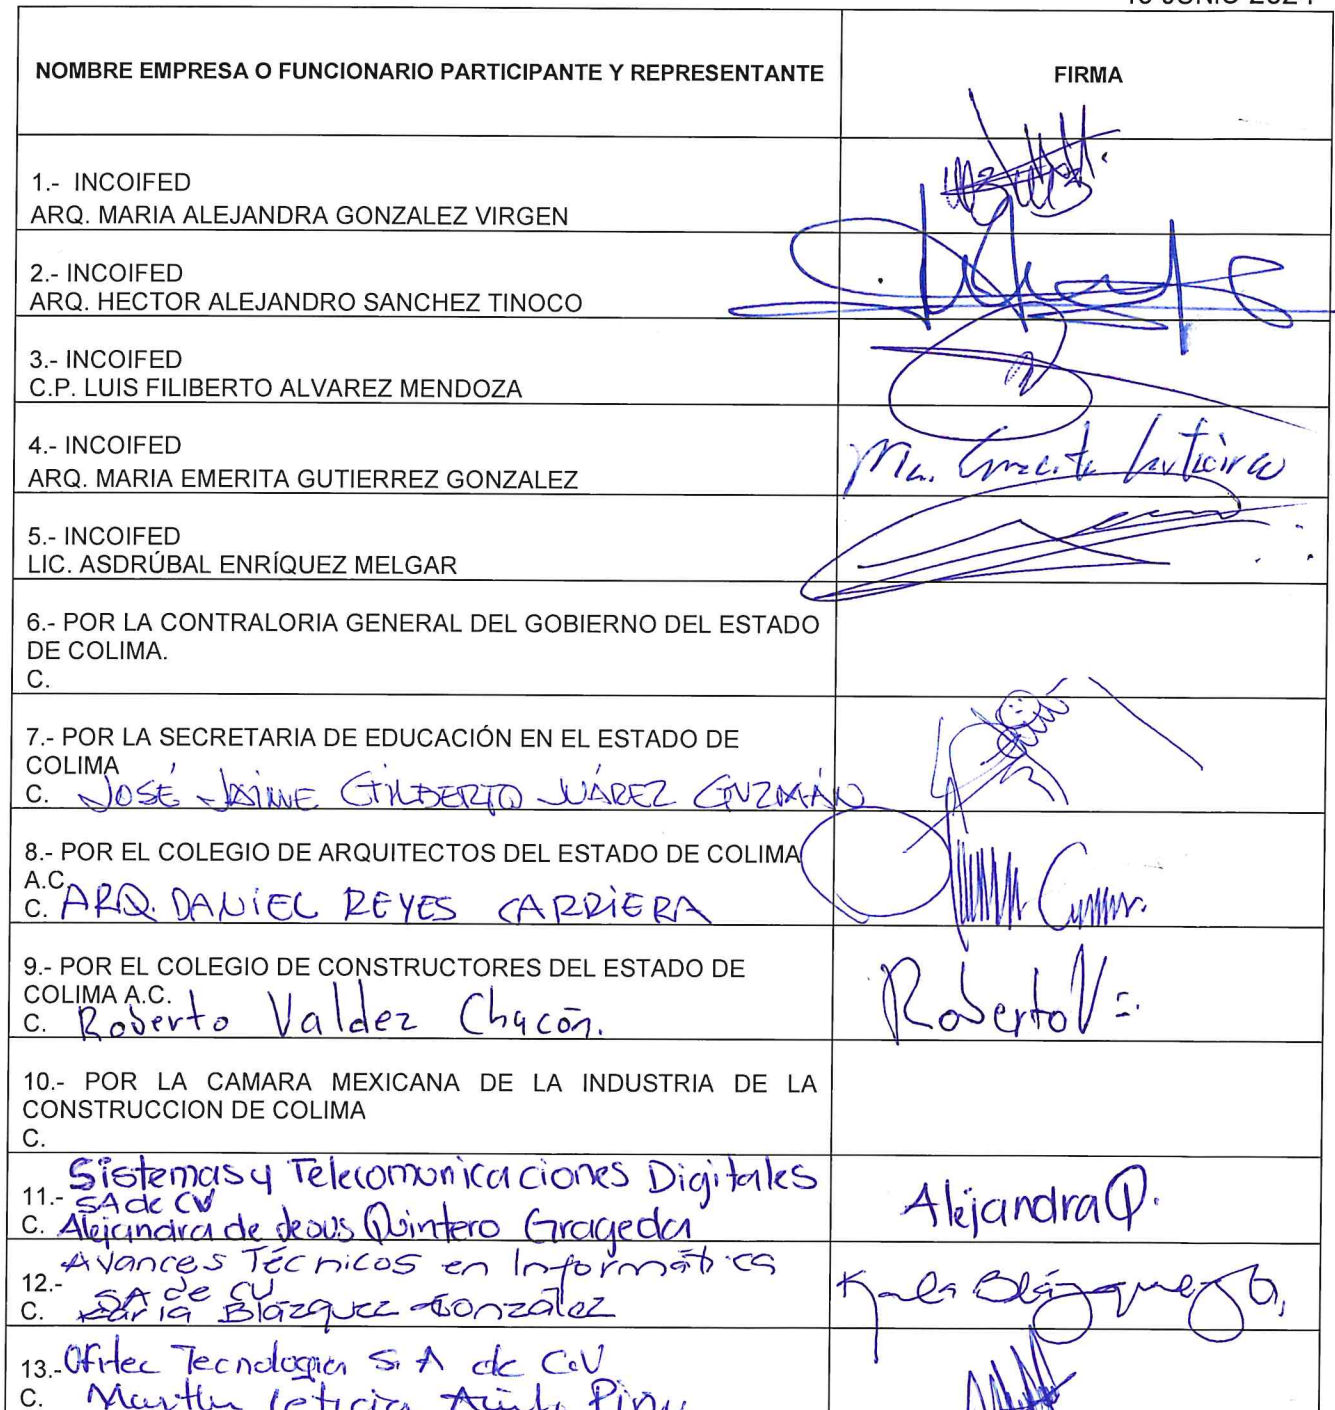 JUNIO 2024
NOMBRE EMPRESA O FUNCIONARIO PARTICIPANTE Y REPRESENTANTE FIRMA
1.- INCOIFED
ARQ. MARIA ALEJANDRA GONZALEZ VIRGEN
2.- INCOIFED
ARQ. HECTOR ALEJANDRO SANCHEZ TINOCO
3.- INCOIFED
C.P. LUIS FILIBERTO ALVAREZ MENDOZA
4.- INCOIFED
ARQ. MARIA EMERITA GUTIERREZ GONZALEZ
Ma. Emerita Gutiérrez
5.- INCOIFED
LIC. ASDRÚBAL ENRÍQUEZ MELGAR
6.- POR LA CONTRALORIA GENERAL DEL GOBIERNO DEL ESTADO
DE COLIMA.
C.
7.- POR LA SECRETARIA DE EDUCACIÓN EN EL ESTADO DE
COLIMA
C. JOSÉ JAIME GILBERTO JUÁREZ GUZMÁN
8.- POR EL COLEGIO DE ARQUITECTOS DEL ESTADO DE COLIMA
A.C.
C. ARQ. DANIEL REYES CARRIERA
9.- POR EL COLEGIO DE CONSTRUCTORES DEL ESTADO DE
COLIMA A.C.
C. Roberto Valdez Chacón.
Roberto V
10.- POR LA CAMARA MEXICANA DE LA INDUSTRIA DE LA
CONSTRUCCION DE COLIMA
C.
Sistemas y Telecomunicaciones Digitales
11.- SA de CV
C. Alejandra de Jesus Quintero Grageda
Alejandra Q.
Avances Técnicos en Informática
12.- SA de CV
C. Karla Blázquez González
Karla Blázquez G.
13.- Ofitec Tecnologia S.A de C.V
C. Martha Leticia